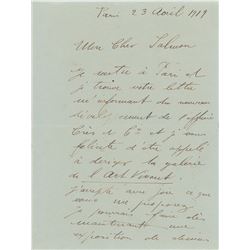 Paris 23 Avril 1919
Mon Cher Salmon
Je rentre à Paris et
je trouve votre lettre
m'informant du nouveau
développement de l'affaire
Crès et Cie et je vous
félicite d'être appelé
à diriger la galerie
de l'Art Vivant.
J'accepte avec joie ce que
vous me proposez
je pourrais faire dès
maintenant une
exposition de dessins